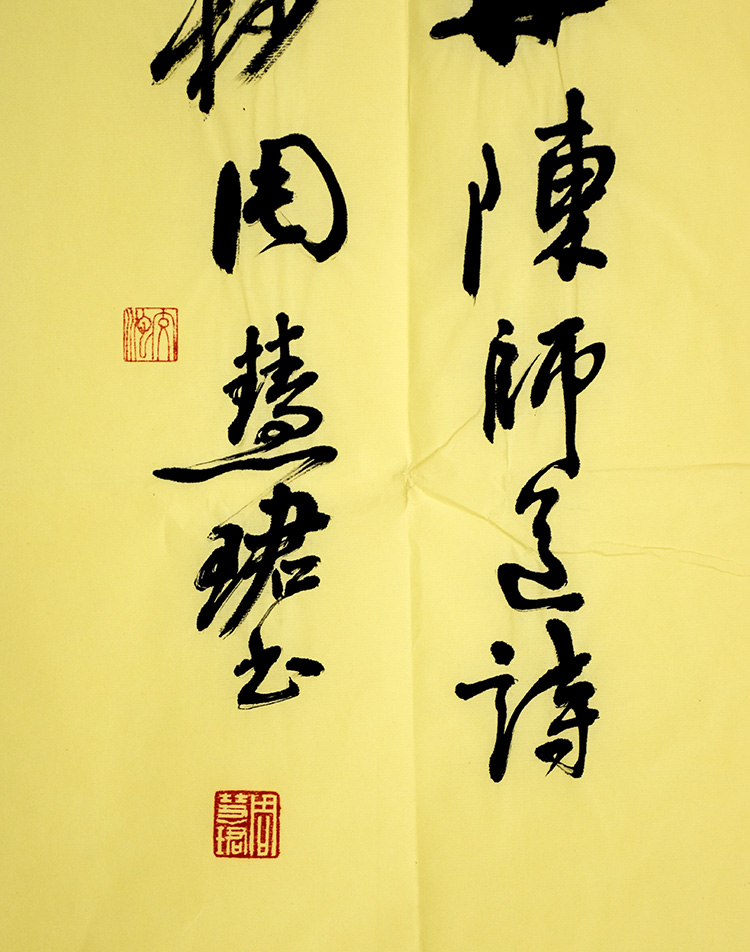 陳師道詩
周慧珺书
周慧珺